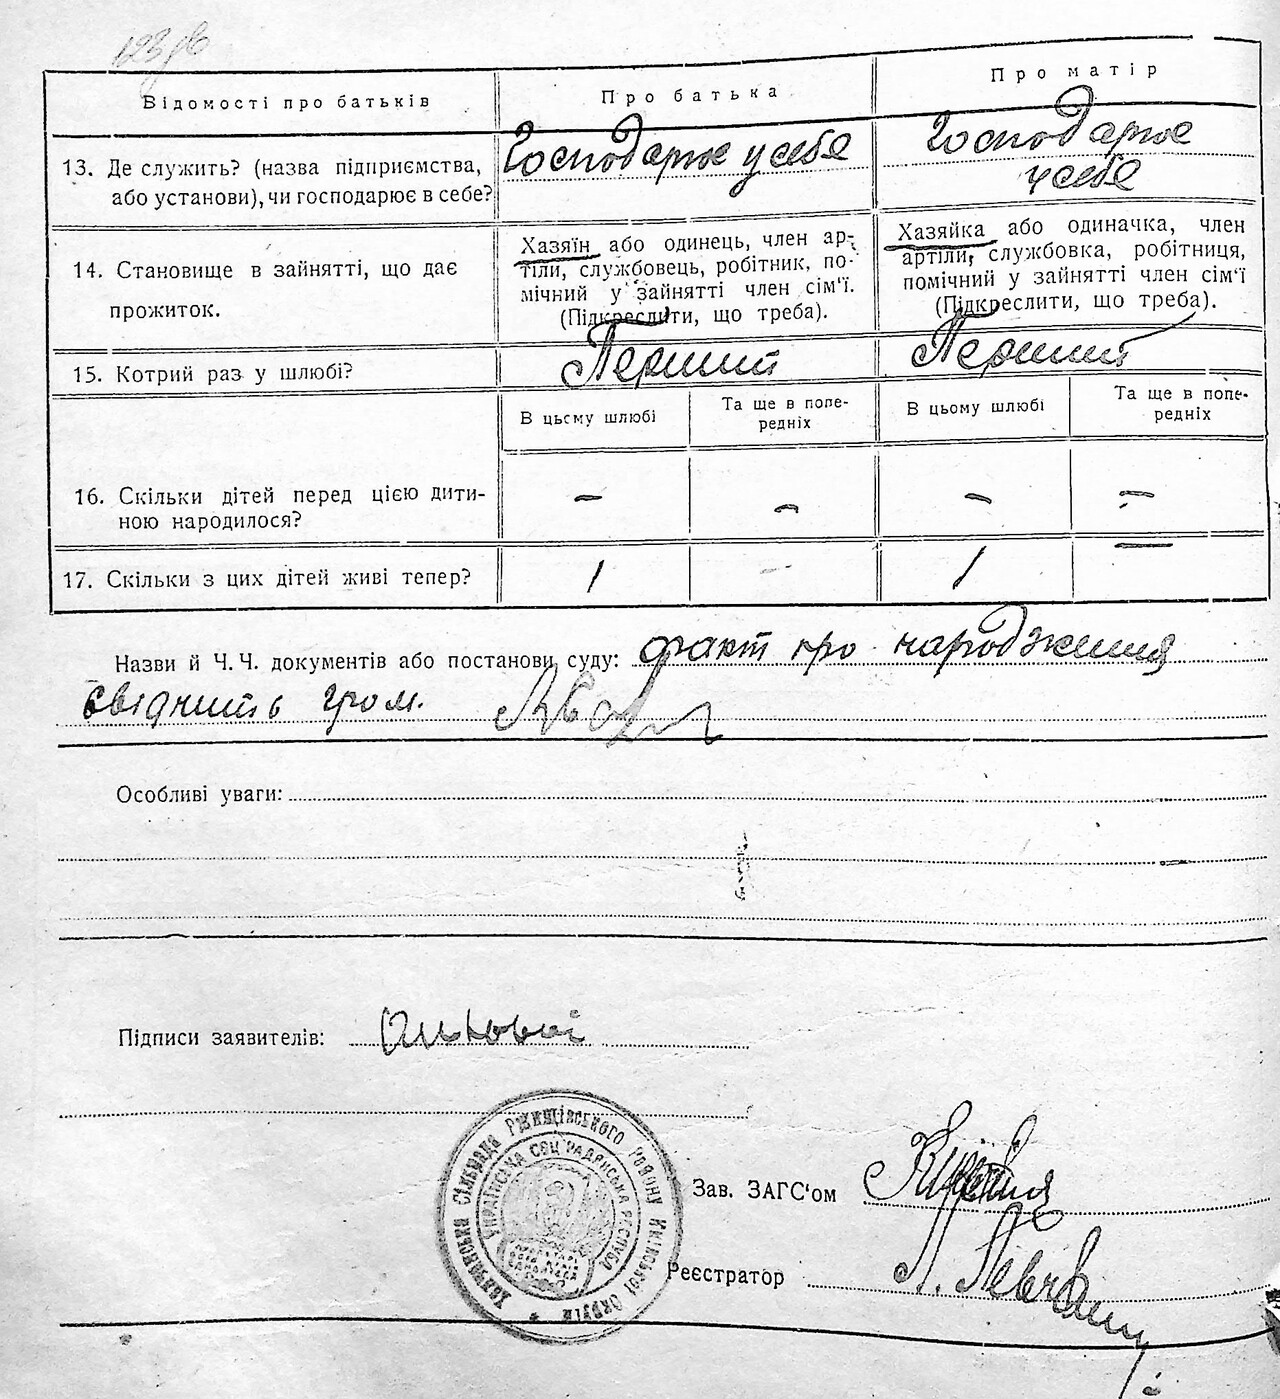 Відомості про батьків
Про батька
Про матір
13. Де служить? (назва підприємства, або установи), чи господарює в себе?
Господарює у себе
Господарює
у себе
14. Становище в зайнятті, що дає
прожиток.
Хазяїн або одинець, член ар-
тіли, службовець, робітник, по-
мічний у зайнятті член сім'ї.
(Підкреслити, що треба).
Хазяйка або одиначка, член
артіли, службовка, робітниця,
помічний у зайнятті член сім'ї
(Підкреслити, що треба).
15. Котрий раз у шлюбі?
Перший
Перший
В цьсму шлюбі
Та ще в попе-
редніх
В цьому шлюбі
Та ще в попе-
редніх
16. Скільки дітей перед цією дити-
ною народилося?
–
–
–
–
17. Скільки з цих дітей живі тепер?
1
–
1
–
Назви й Ч. Ч. документів або постанови суду: факт про народження
свідчить гром.
Особливі уваги:
Підписи заявителів:
СІЛЬРАДА РЖИЩІВСЬКОГО РАЙОНУ КИЇВСЬКОЇ ОКРУГИ
УКРАЇНСЬКА СОЦ РАДЯНСЬКА РЕСПУБ
Зав. ЗАГС'ом
Реєстратор